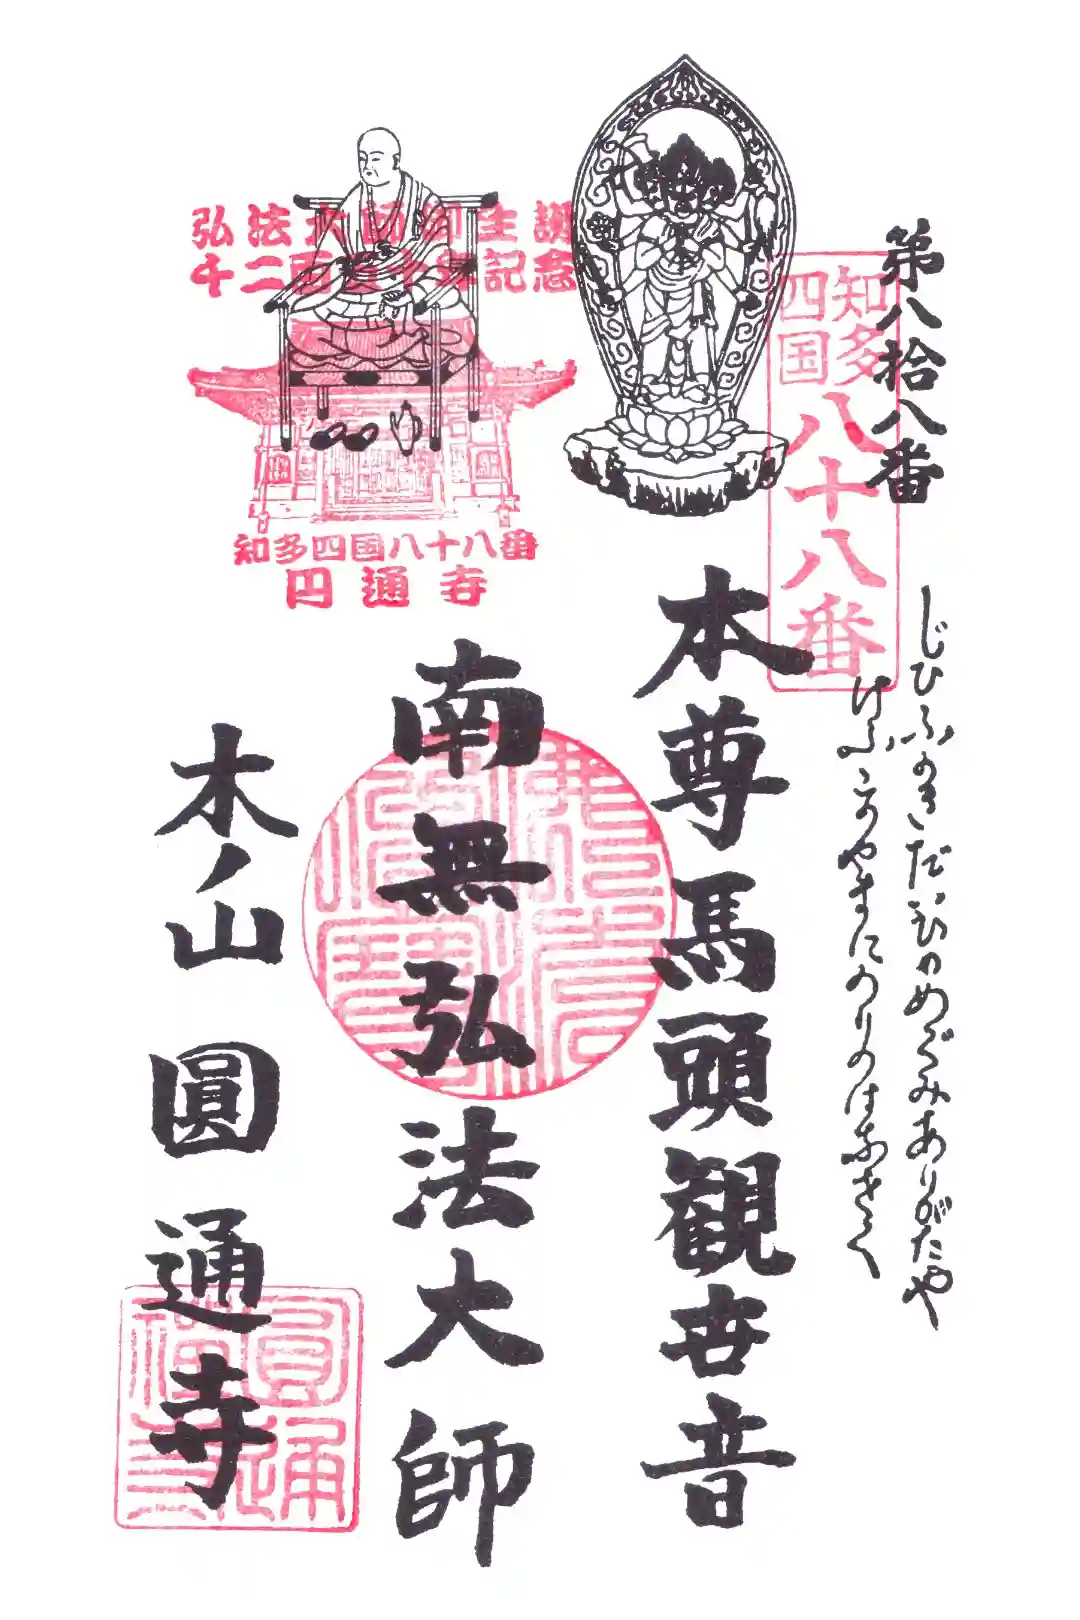 第八拾八番
知多
四国
八十八番
じひふかきだいひのめぐみありがたや
けふこのやまにのりのはなさく
本尊馬頭観世音
南無弘法大師
佛法僧寶
弘法大師御生誕
千二百五十年記念
知多四国八十八番
円通寺
木ノ山 圓通寺
圓通禅寺